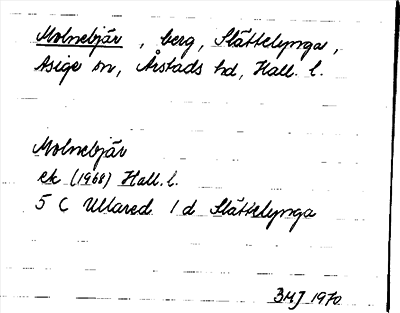 Molnebjär, berg, Slättelynga,
Asige sn, Årstads hd, Hall. l.
Molnebjär
ek (1968) Hall. l.
5 C Ullared 1 d Slättelynga
BMJ 1970